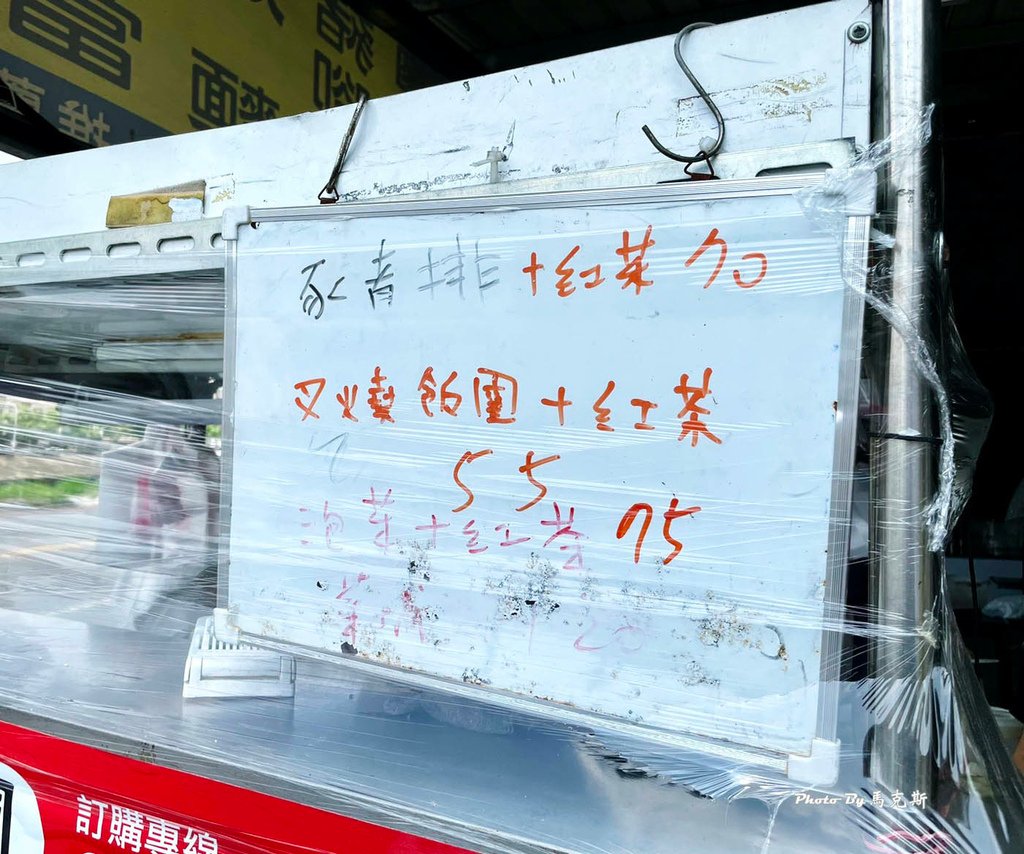 富
麵
推
豖青排+紅茶 70
叉燒飯團+紅茶
55
泡菜+紅茶 75
20
訂購專線
Photo By 馬克斯